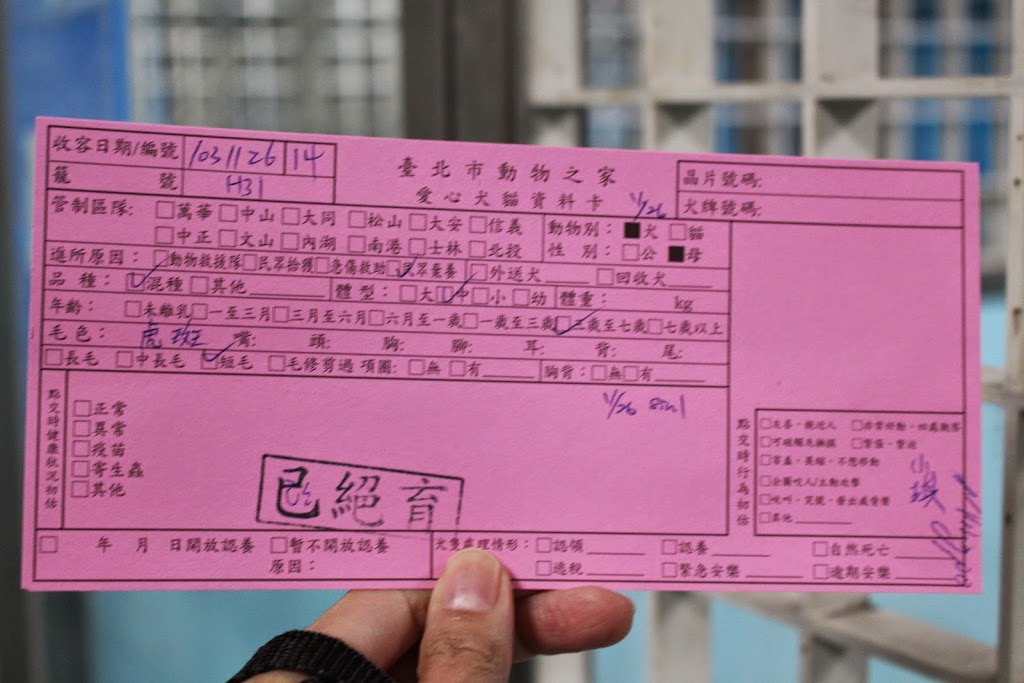 收容日期/編號 1031126 14
籠號 H31
臺北市動物之家
愛心犬貓資料卡
晶片號碼:
犬牌號碼:
11/26
管制區隊: □萬華 □中山 □大同 □松山 □大安 □信義
□中正 □文山 □內湖 □南港 □士林 □北投
動物別: ■犬 □貓
性別: □公 ■母
進所原因: □動物救援隊 □民眾拾獲 □急傷救助 ☑民眾棄養 □外送犬____ □回收犬____
品種: ☑混種 □其他____ 體型: □大 ☑中 □小 □幼 體重:____kg
年齡: □未離乳 □一至三月 □三月至六月 □六月至一歲 □一歲至三歲 ☑三歲至七歲 □七歲以上
毛色: 虎斑 嘴: 頭: 胸: 腳: 耳: 背: 尾:
□長毛 □中長毛 ☑短毛 □毛修剪過 項圈: □無 □有____ 胸背: □無 □有____
11/26 8in1
點交時健康狀況初估
□正常
□異常
□疫苗
□寄生蟲
□其他
已絕育
點交時行為初估
□友善、親近人 □非常好動、四處觀察
□可碰觸及擁抱 □緊張、緊迫
□害羞、畏縮、不想移動
□企圖咬人/主動攻擊
□吠叫、哭號、發出威脅聲
□其他____
□ 年 月 日開放認養 □暫不開放認養
原因:
犬隻處理情形: □認領____ □認養____ □自然死亡____
□逃脫____ □緊急安樂____ □逾期安樂____